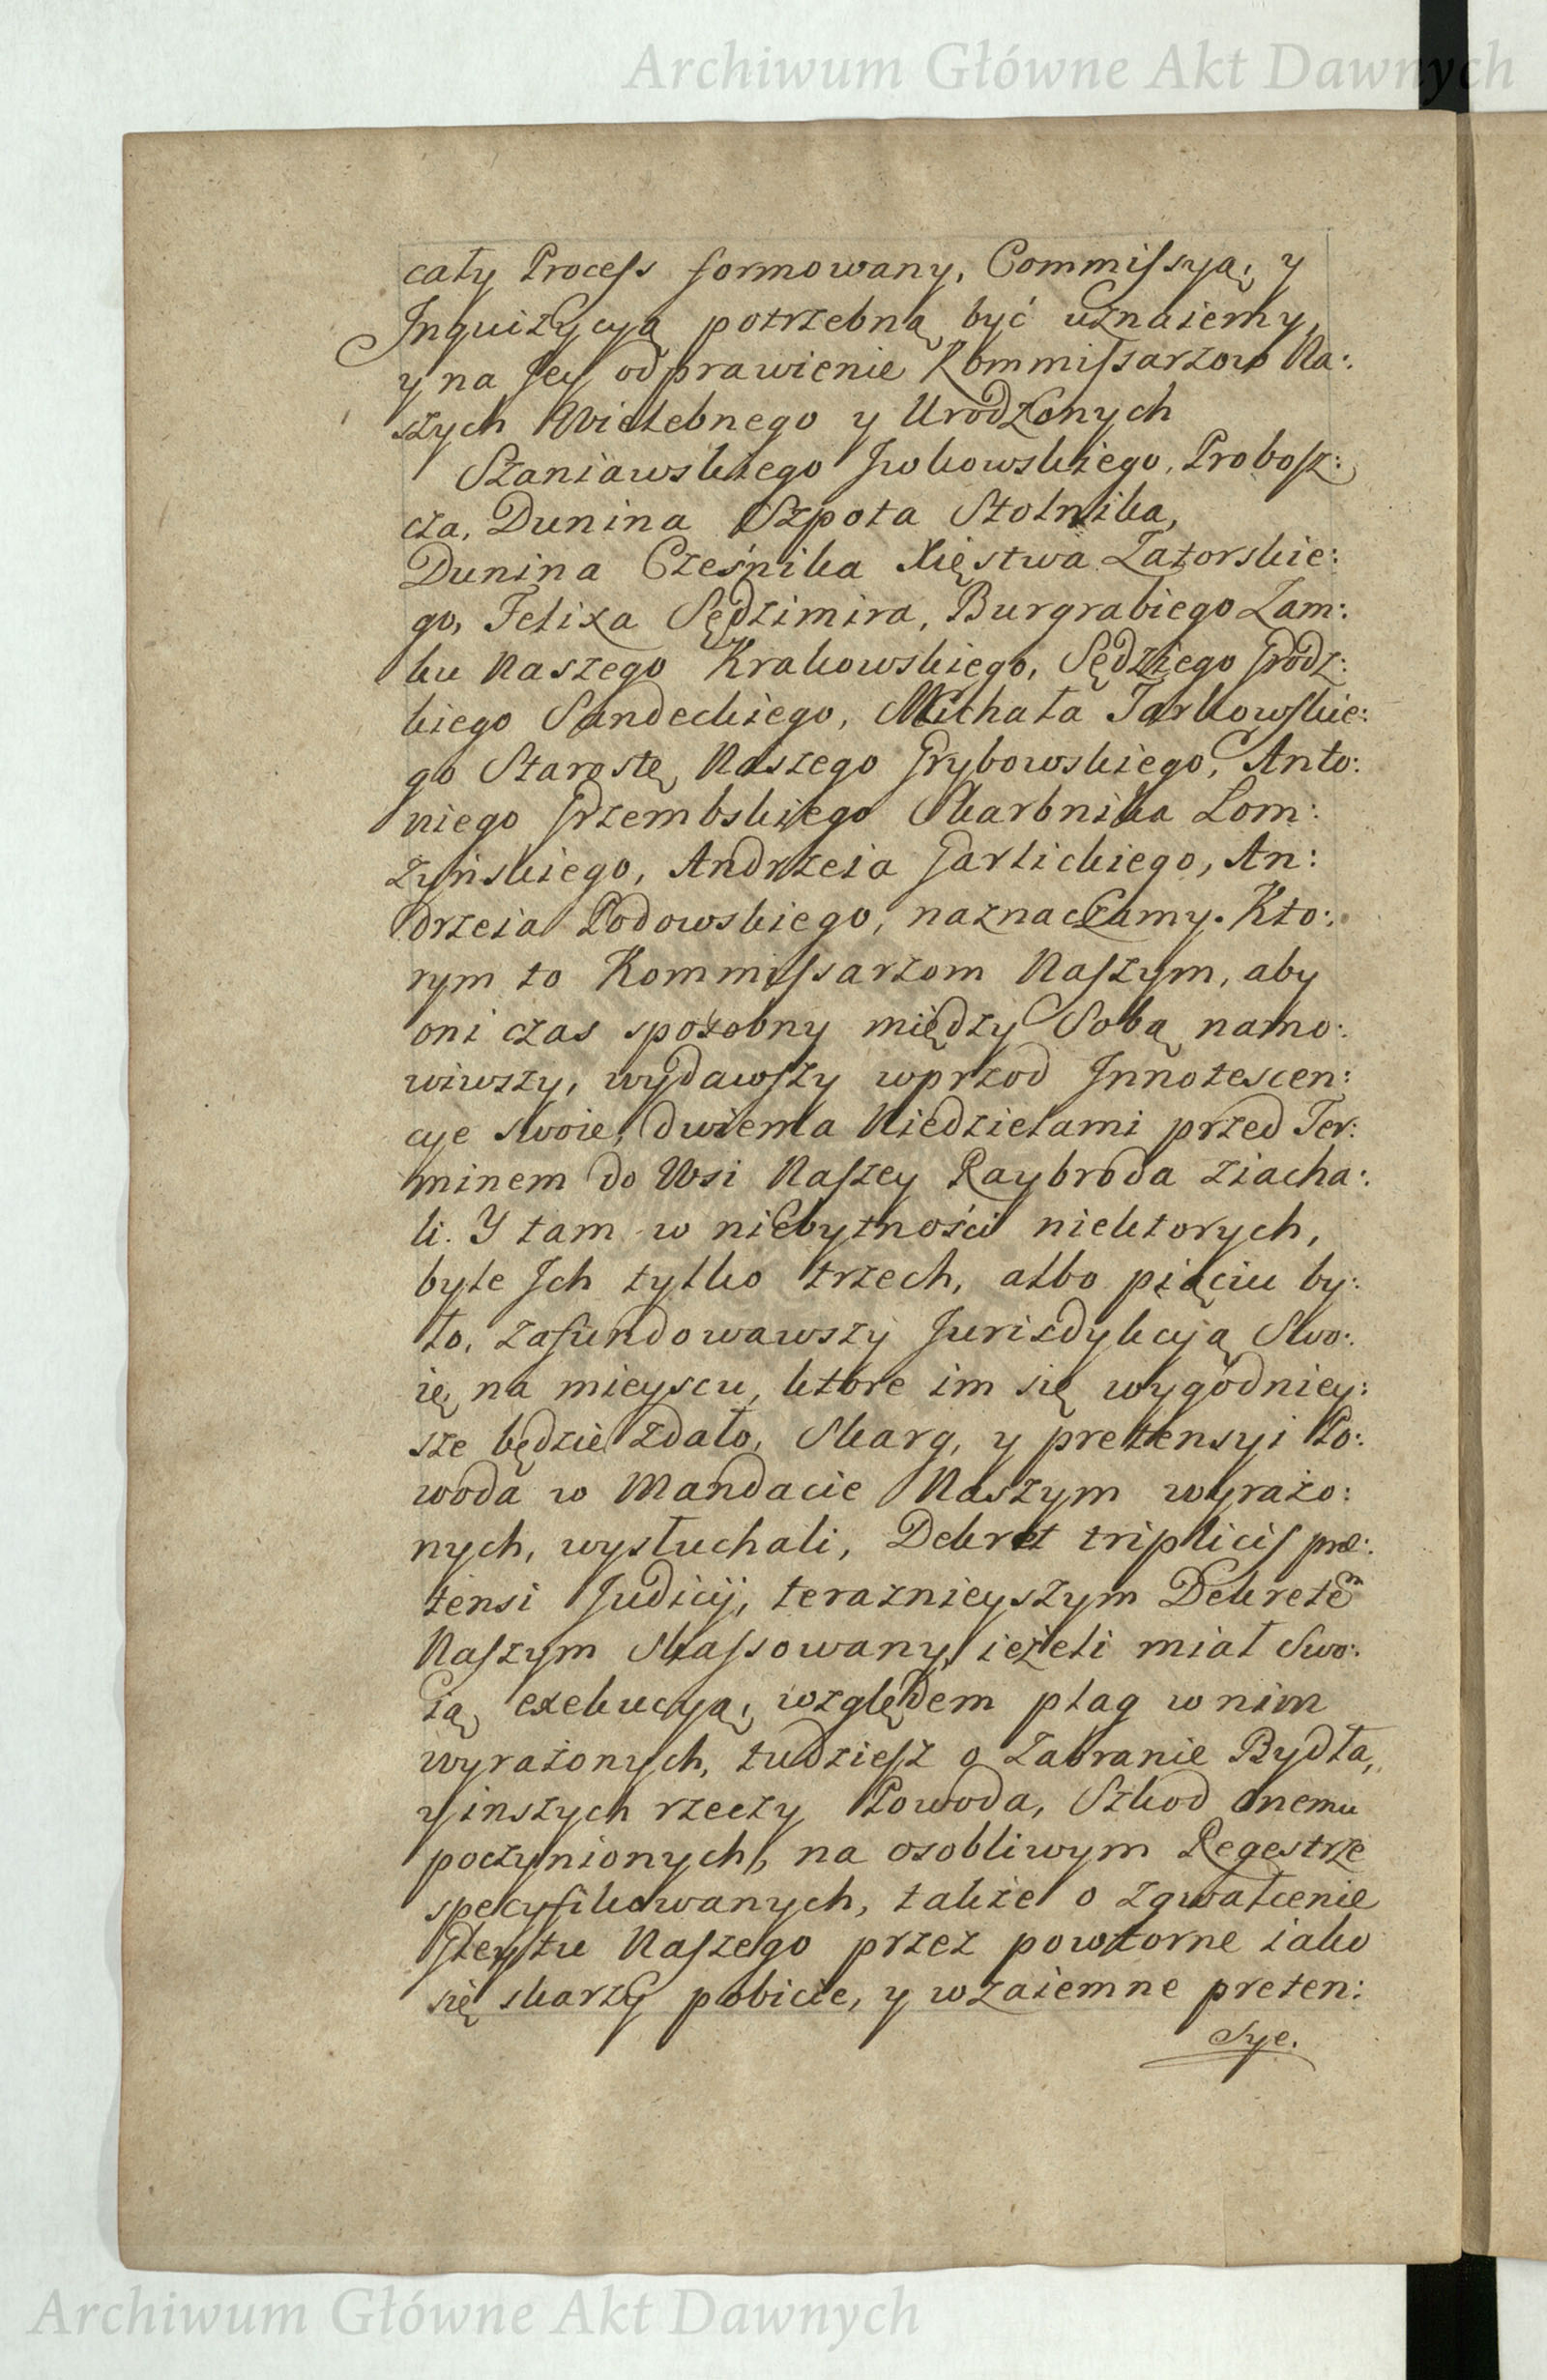 Archiwum Główne Akt Dawnych
cały Process formowany, Commissyą, y
Inquizycyą potrzebną być uznaiemy,
y na Jey odprawienie Kommissarzow Na:
szych Wielebnego y Urodzonych
Szaniawskiego Jwkowskiego, Probosz:
cza, Dunina Szpota Stolnika,
Dunina Cześnika Xięstwa Zatorskie:
go, Felixa Sędzimira, Burgrabiego Zam:
ku Naszego Krakowskiego, Sędziego Grodz:
kiego Sandeckiego, Michała Jarkowskie:
go Starostę Naszego Grybowskiego, Anto:
niego Grzembskiego Skarbnika Łom:
żyńskiego, Andrzeia Garlickiego, An:
drzeia Podowskiego, naznaczamy. Kto:
rym to Kommissarzom Naszym, aby
oni czas sposobny między Sobą namo:
wiwszy, wydawszy wprzod Jnnotescen:
cye swoie, dwiema Niedzielami przed Ter:
minem do Wsi Naszey Raybroda ziacha:
li. Y tam w niebytności niektorych,
byle Jch tylko trzech, albo pięciu by:
ło, zafundowawszy Jurizdykcyą Swo:
ię na mieyscu, ktore im się wygodniey:
sze będzie zdało, Skarg, y pretensyi Po:
woda w Mandacie Naszym wyrażo:
nych, wysłuchali, Dekret triplicis præ:
tensi Judicij, teraznieyszym Dekretem
Naszym skassowany, ieżeli miał Swo:
ią exekucyą, względem plag w nim
wyrażonych, tudziesz o Zabranie Bydła,
y inszych rzeczy Powoda, Szkod onemu
poczynionych, na osobliwym Regestrze
specyfikowanych, także o zgwałcenie
Gleytu Naszego przez powtorne iako
się skarży pobicie, y wzaiemne preten:
sye.
Archiwum Główne Akt Dawnych